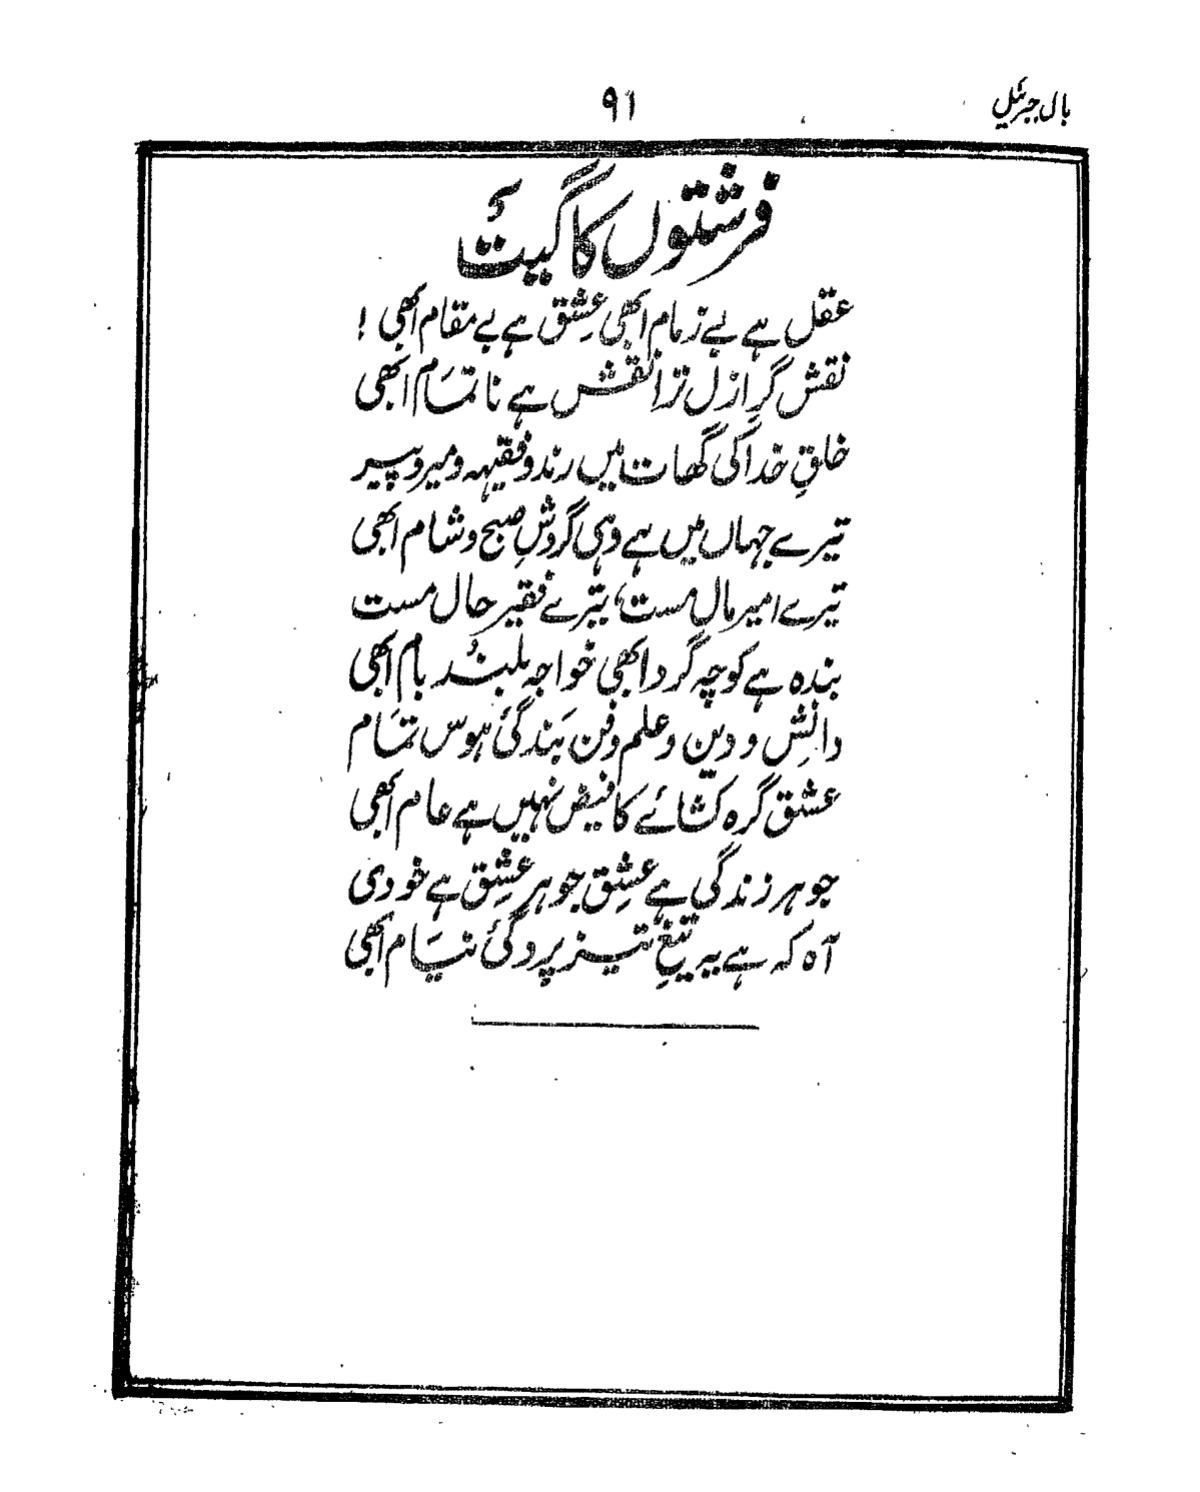 بال جبرئیل
۹۱
فرشتوں کا گیت
عقل ہے بے زمام ابھی عشق ہے بے مقام ابھی !
نقش گرِ ازل ترا نقش ہے نا تمام ابھی
خلقِ خدا کی گھات میں رند و فقیہہ و میر و پیر
تیرے جہاں میں ہے وہی گردشِ صبح و شام ابھی
تیرے امیر مال مست، تیرے فقیر حال مست
بندہ ہے کوچہ گرد ابھی خواجہ بلند بام ابھی
دانش و دین و علم و فن بندگیٔ ہوس تمام
عشق گرہ کشائے کا فیض نہیں ہے عام ابھی
جوہر زندگی ہے عشق جوہر عشق ہے خودی
آہ کہ ہے یہ تیغِ تیز پردگیٔ نیام ابھی